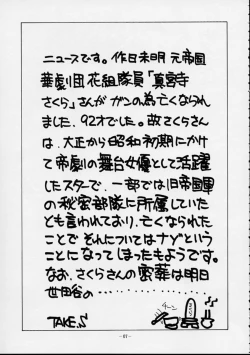 ニュースです。作日未明 元帝国
華劇団花組隊員「真宮寺
さくら」さんがガンの為亡くなられ
ました、92才でした。故さくらさん
は、大正から昭和初期にかけ
て帝劇の舞台女優として活躍
したスターで、一部では旧帝国軍
の秘密部隊に所属していた
とも言われており、亡くなられた
ことで それについてはナゾという
ことになってしまったもようです。
なお、さくらさんの密葬は明日
世田谷の………
チーン
TAKE.S
-87-